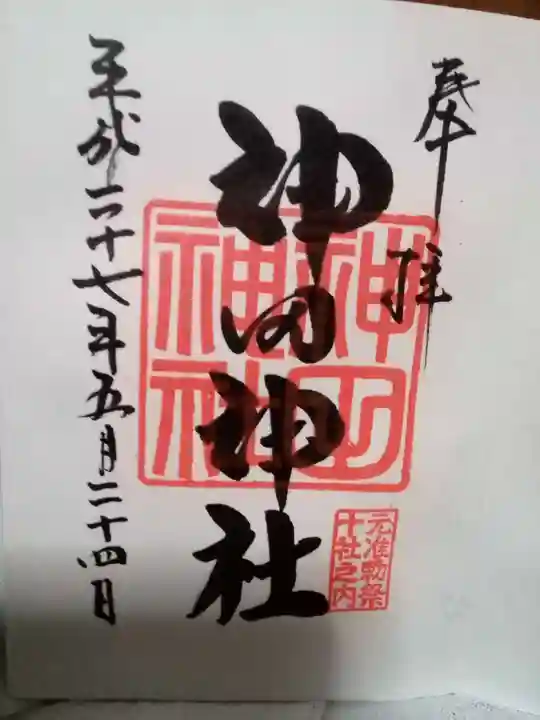 奉拝
神田神社
平成二十七年五月二十四日
神田
神社
元准勅祭
十社之内